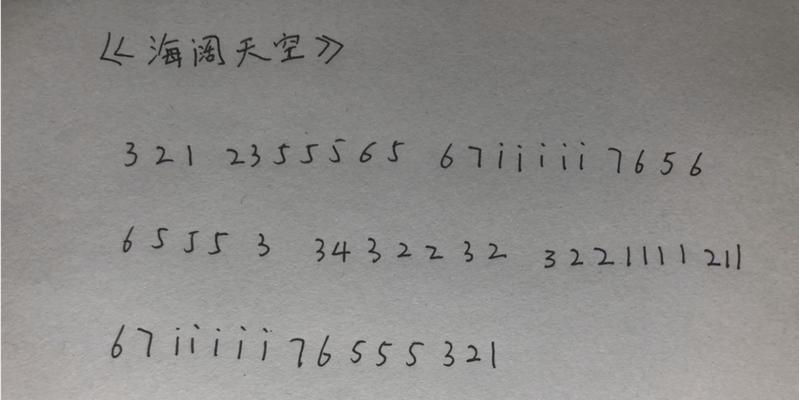 《海阔天空》
3 2 1 2 3 5 5 5 6 5 6 7 i i i i i 7 6 5 6
6 5 5 5 3 3 4 3 2 2 3 2 3 2 2 1 1 1 1 2 1 1
6 7 i i i i i 7 6 5 5 5 3 2 1